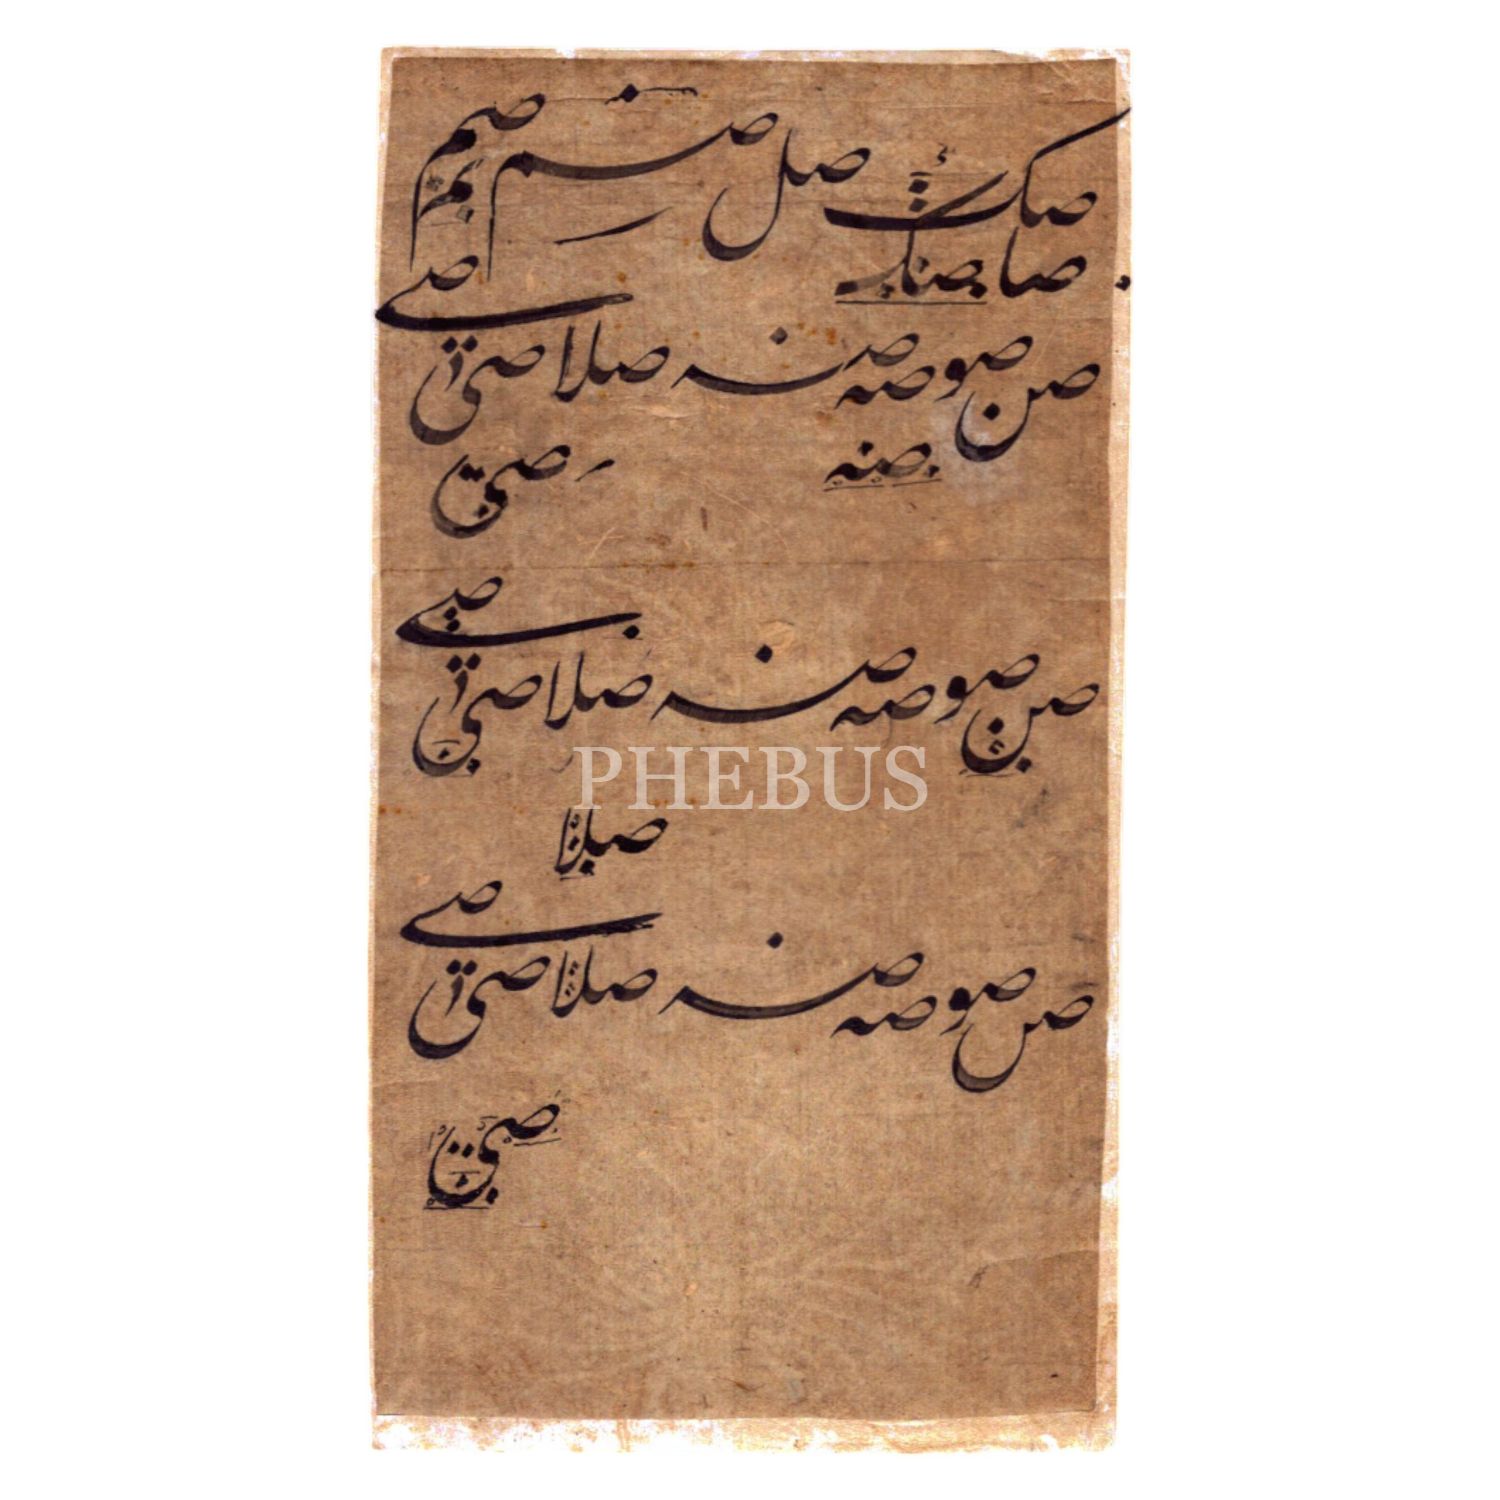 صك صل صنم صم
صا صك
صن صو صه صنه صلا صی صے
صنه صی
صن صو صه صنه صلا صی صے
PHEBUS
صلا
صن صو صه صنه صلا صی صے
صی